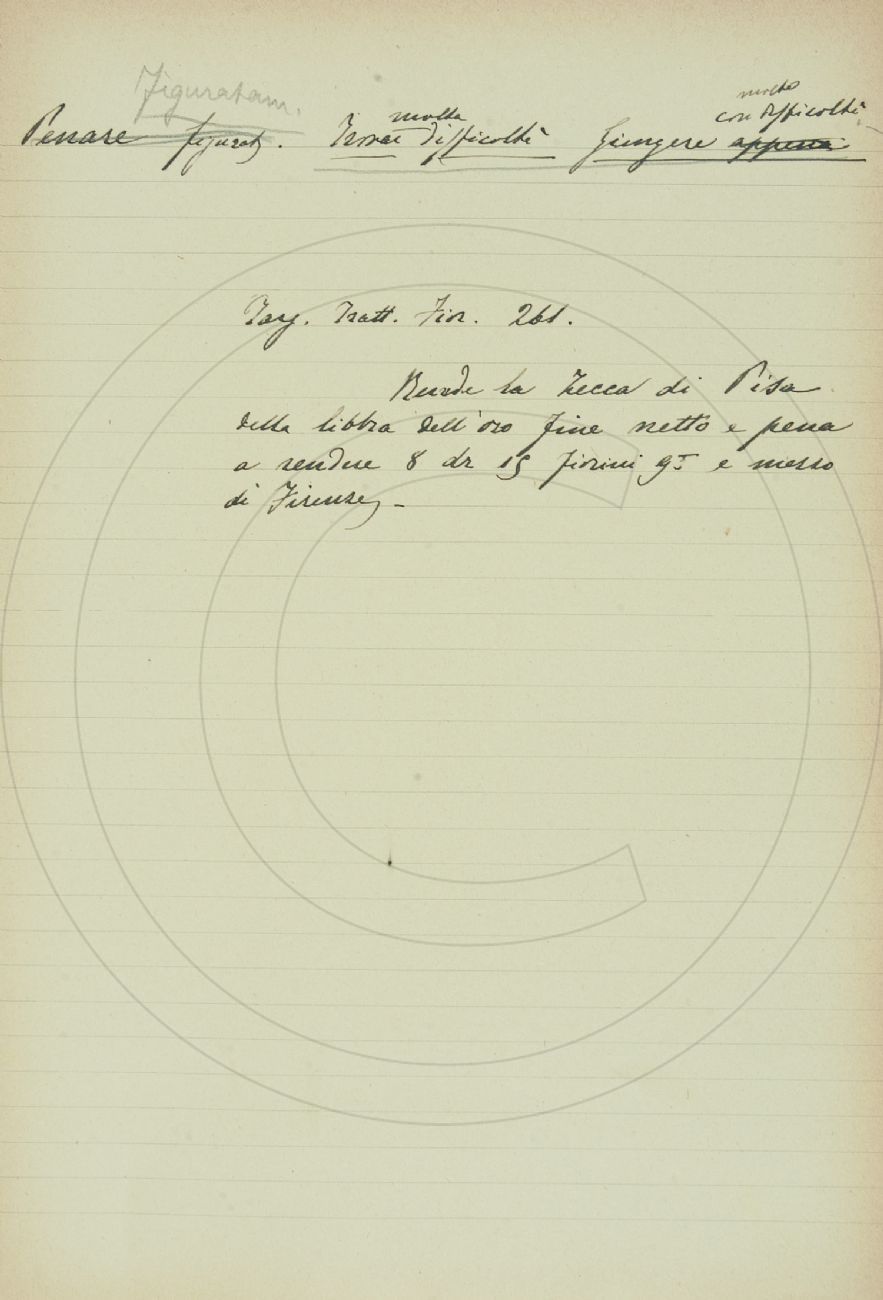 Figuratam.
Penare figurat. Trovar molta difficoltà Giungere appena molto con difficoltà
Targ. Tratt. Fior. 261.
Rende la Zecca di Pisa
della libbra dell'oro fine netto e pena
a rendere 8 dr 15 fiorini g.i e messo
di Firenze, -